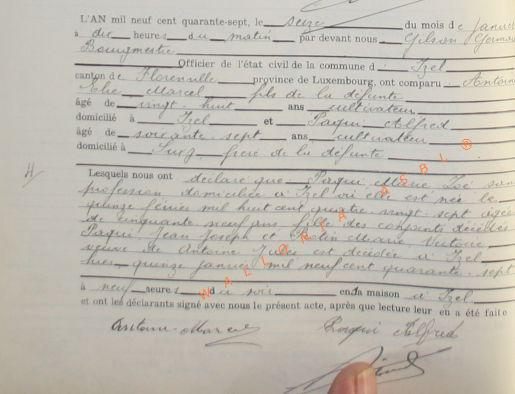 L'AN mil neuf cent quarante-sept, le seize du mois de janvier
à dix heures du matin par devant nous Gilson
Bourgmestre
Officier de l'état civil de la commune d' Izel
canton de Florenville province de Luxembourg, ont comparu Antoine
Elie Marcel fils de la défunte
âgé de vingt huit ans cultivateur
domicilié à Izel et Paqui Alfred
âgé de soixante sept ans cultivateur
domicilié à frère de la défunte
4/
Lesquels nous ont déclaré que Paqui Marie Zoé san
profession domiciliée à Izel où elle est née le
quinze février mil huit cent quatre vingt sept âgée
de cinquante neuf ans fille des conjoints décédés
Paqui Jean Joseph et Marie Victoire
veuve de Antoine Jules est décédée à Izel
hier quinze janvier mil neuf cent quarante sept
à neuf heures du soir en la maison à Izel
et ont les déclarants signé avec nous le présent acte, après que lecture leur en a été faite
Antoine Marcel Paqui Alfred
WALLONIA ASBL ©